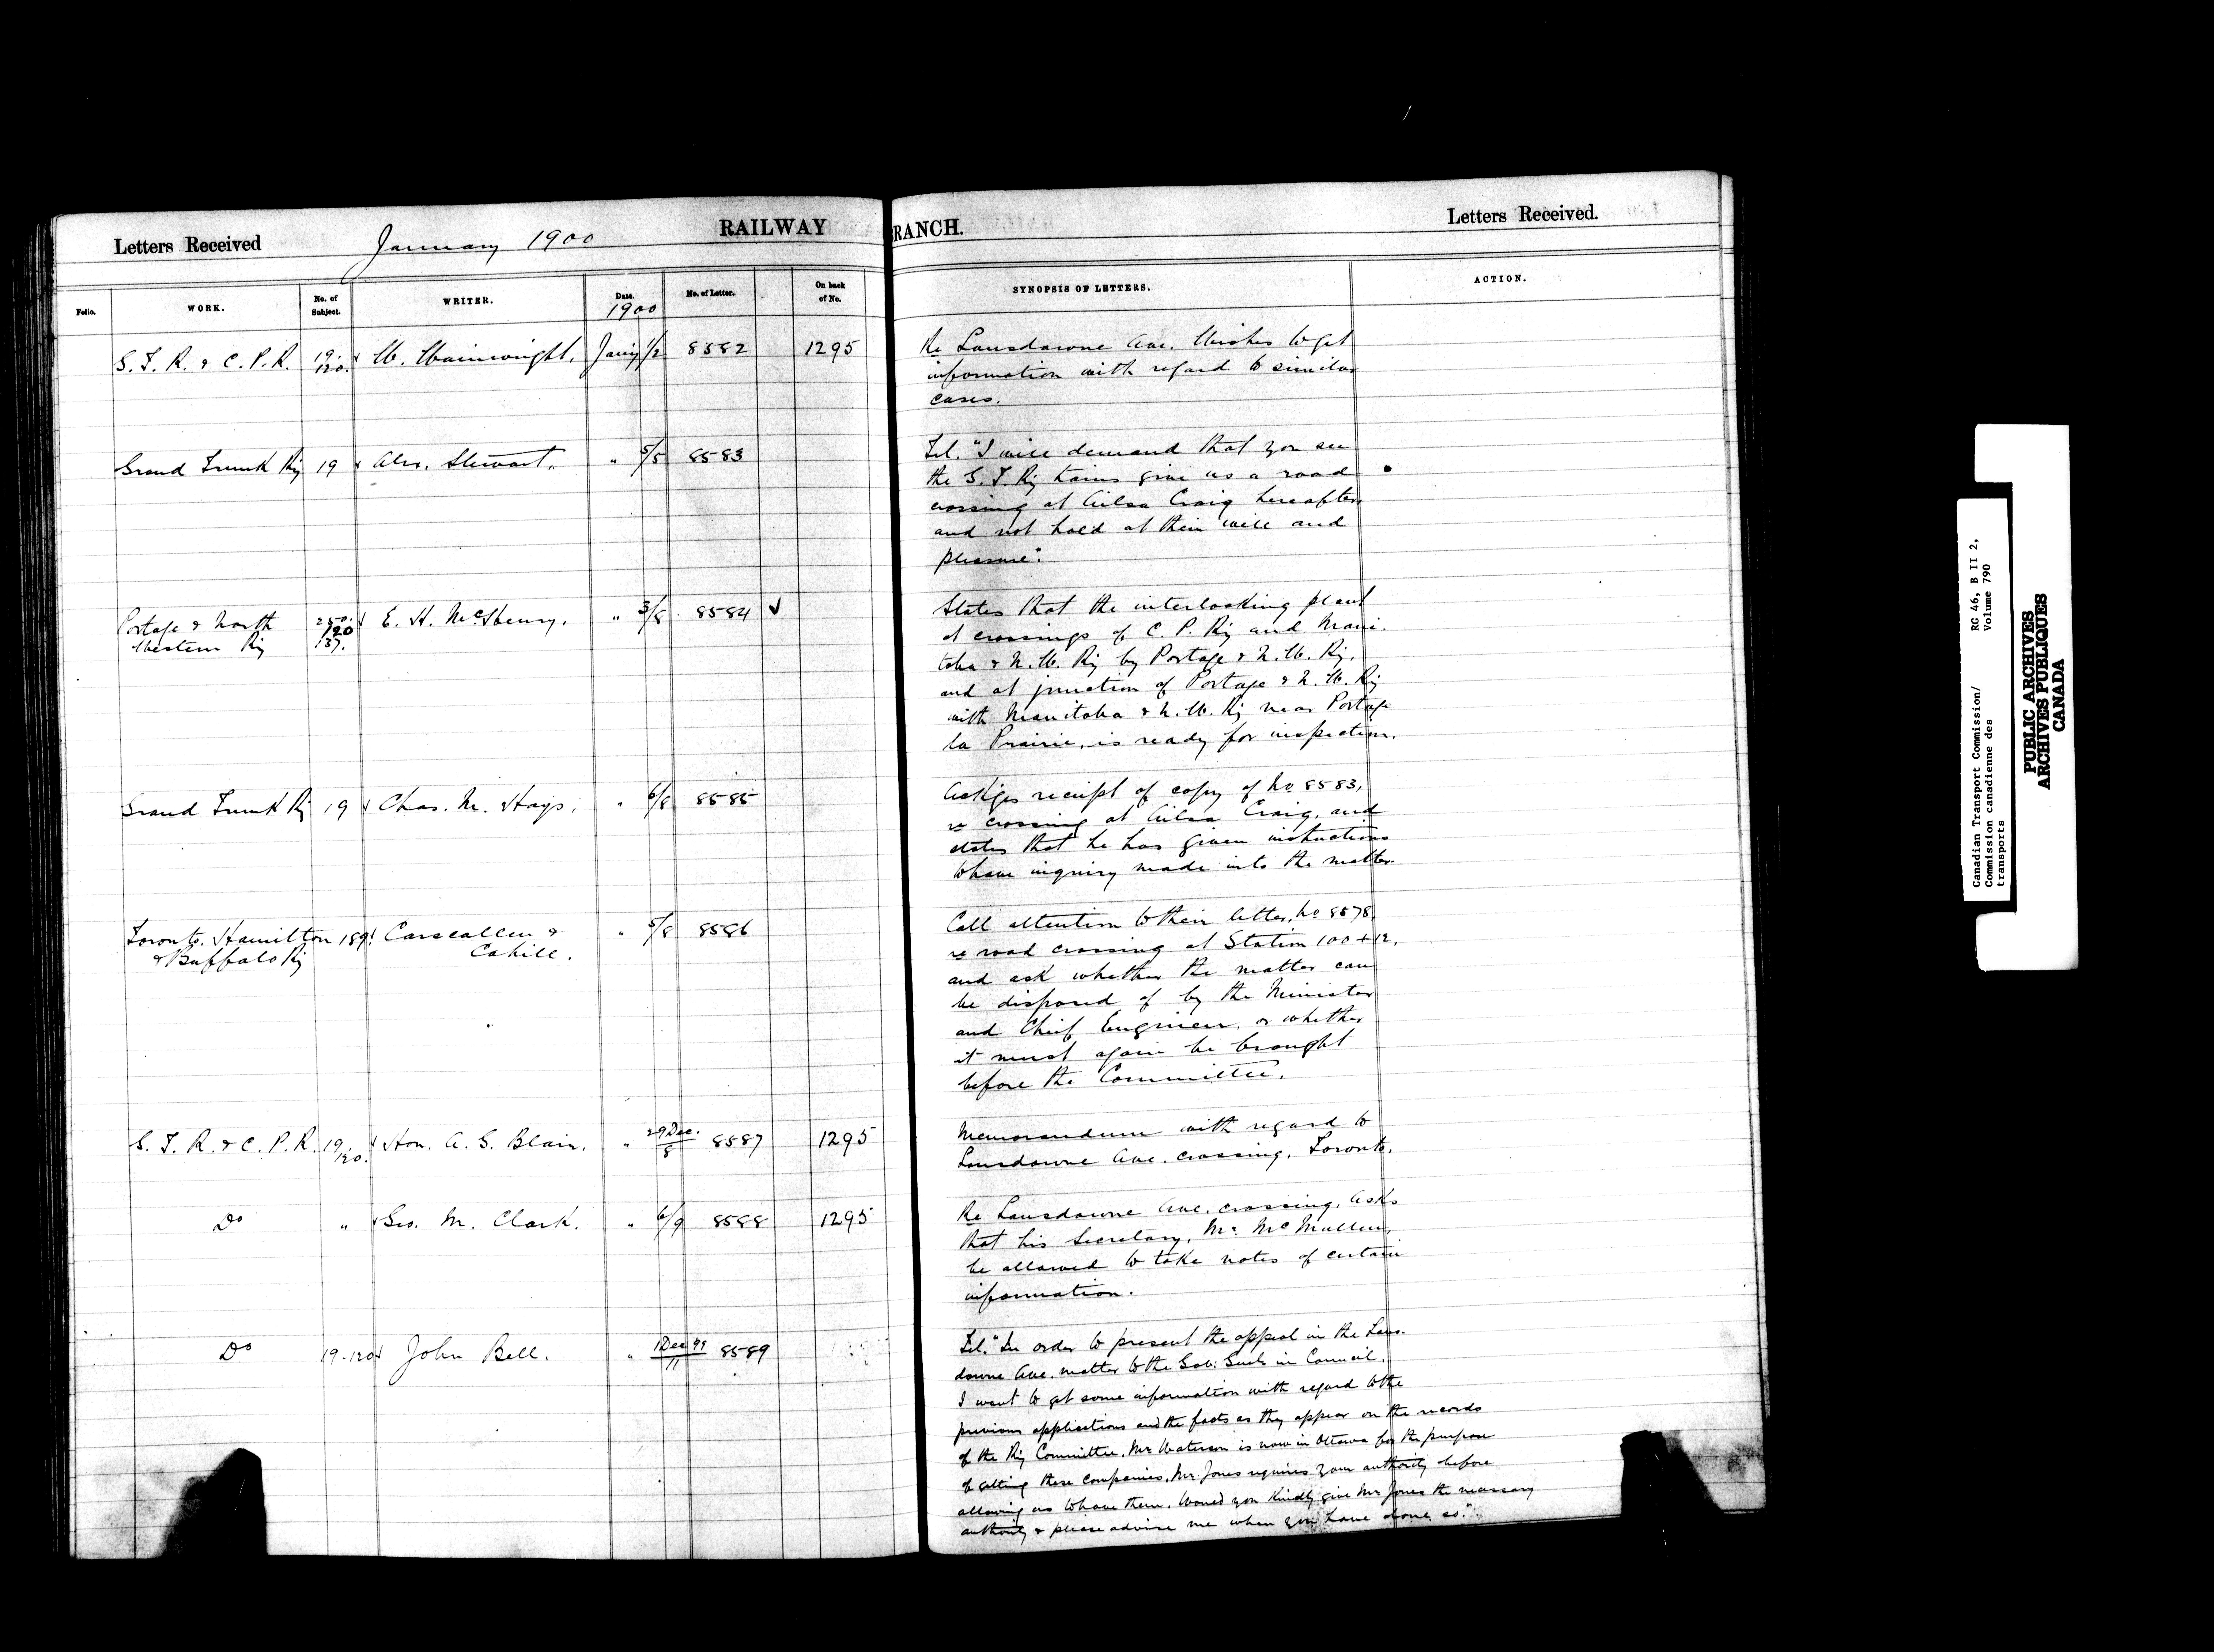 Letters Received January 1900 RAILWAY BRANCH. Letters Received.
Folio. WORK. No. of Subject. WRITER. Date. 1900 No. of Letter. On back of No. SYNOPSIS OF LETTERS. ACTION.
G. T. R. & C. P. R. 19. 120. W. Wainwright. Jan'y 1/2 8582 1295
Re Lansdowne Ave. Wishes to get
information with regard to similar
cases.
Grand Trunk Ry 19 Alex. Stewart. " 5/5 8583
Tel. "I will demand that you see
the G. T. Ry trains give us a road
crossing at Ailsa Craig hereafter
and not hold at their will and
pleasure".
Portage & North Western Ry 250. 120 137. E. H. McHenry. " 3/8 8584 ✓
States that the interlocking plant
at crossings of C. P. Ry and Mani-
toba & N. W. Ry by Portage & N. W. Ry.
and at junction of Portage & N. W. Ry
with Manitoba & N. W. Ry near Portage
la Prairie, is ready for inspection.
Grand Trunk Ry 19 Chas. M. Hays. " 6/8 8585
Ackges receipt of copy of No 8583,
re crossing at Ailsa Craig, and
states that he has given instructions
to have inquiry made into the matter.
Toronto, Hamilton & Buffalo Ry 189 Carscallen & Cahill. " 5/8 8586
Call attention to their letter, No 8578,
re road crossing at Station 100 + 12,
and ask whether the matter can
be disposed of by the Minister
and Chief Engineer, or whether
it must again be brought
before the Committee.
G. T. R. & C. P. R. 19/120. Hon. A. G. Blair. " 29 Dec. 8 8587 1295
Memorandum with regard to
Lansdowne Ave. crossing, Toronto.
Do " Geo. M. Clark. " 6/9 8588 1295
Re Lansdowne Ave. crossing, asks
that his Secretary, Mr McMullen,
be allowed to take notes of certain
information.
Do 19-120 John Bell. " 1 Dec 99 11 8589
Tel. "In order to present the appeal in the Lans-
downe Ave. matter to the Gov: Genl: in Council,
I want to get some information with regard to the
previous applications and the facts as they appear on the records
of the Ry Committee. Mr Waterson is now in Ottawa for the purpose
of getting these Companies. Mr Jones requires your authority before
allowing us to have them. Would you kindly give Mr Jones the necessary
authority & please advise me when you have done so."
Canadian Transport Commission/ RG 46, B II 2,
Commission canadienne des Volume 790
transports
PUBLIC ARCHIVES
ARCHIVES PUBLIQUES
CANADA